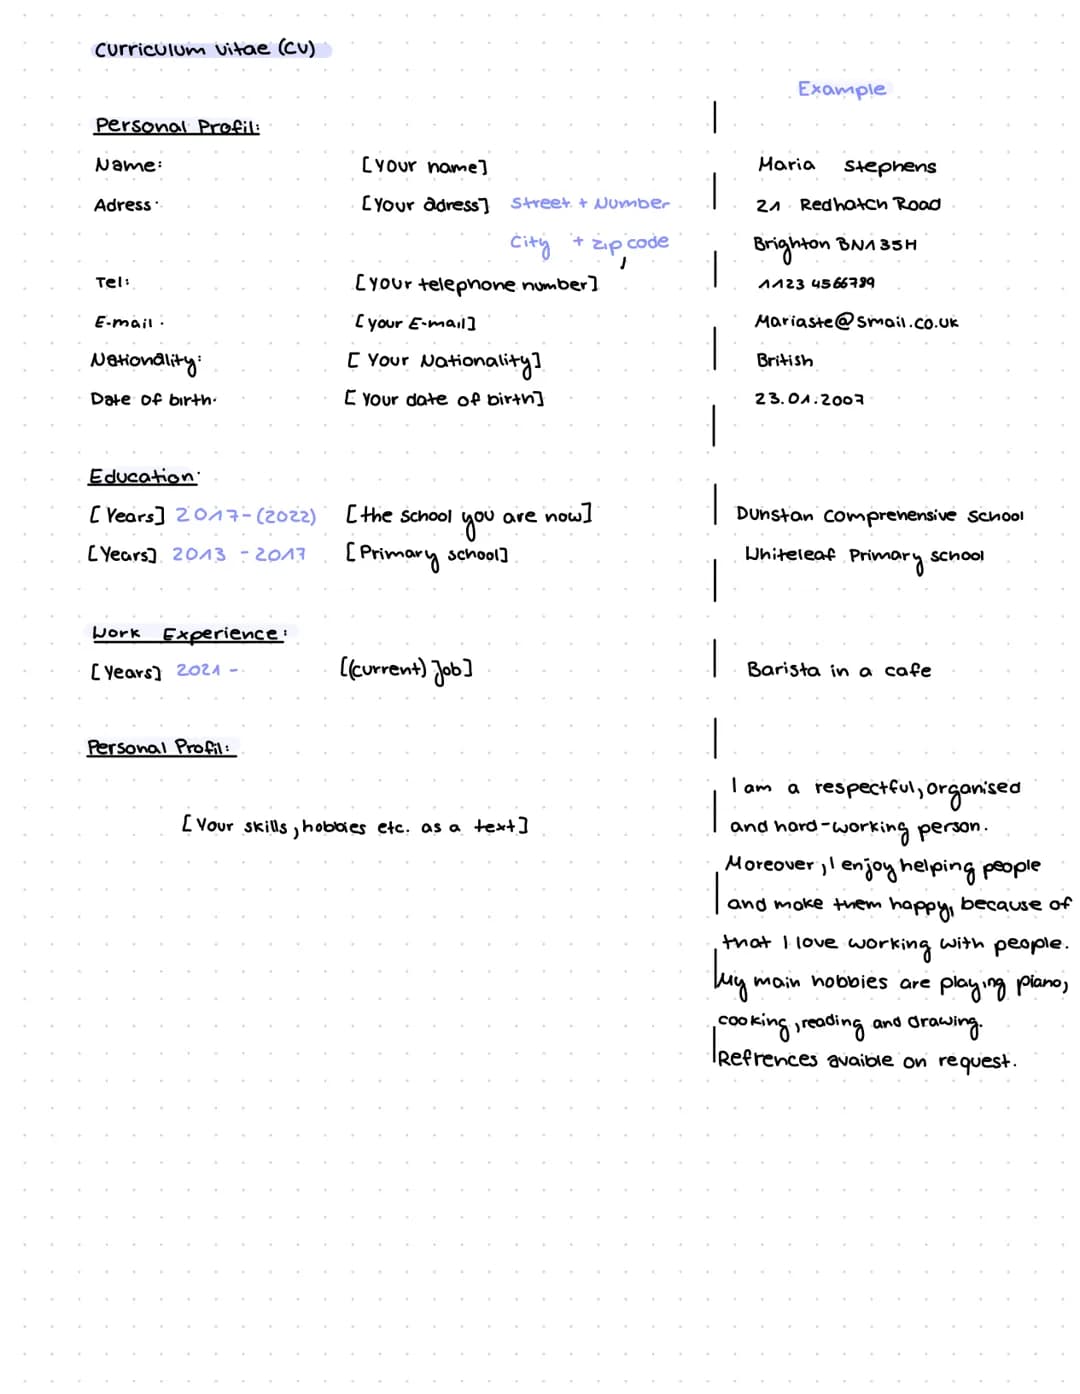 Curriculum vitae (CV)
Example
Personal Profil:
Name: [Your name] Maria Stephens
Adress: [Your adress] Street + Number 21 Redhatch Road
City + zip code Brighton BN1 35H
Tel: [Your telephone number] 1123 4566789
E-mail: [your E-mail] Mariaste@smail.co.uk
Nationality: [Your Nationality] British
Date of birth: [Your date of birth] 23.01.2007
Education:
[Years] 2017-(2022) [the school you are now] Dunstan Comprehensive school
[Years] 2013 - 2017 [Primary school] Whiteleaf Primary school
Work Experience:
[Years] 2021 - [(current) Job] Barista in a cafe
Personal Profil:
[Your skills, hobbies etc. as a text]
I am a respectful, organised
and hard-working person.
Moreover, I enjoy helping people
and make them happy, because of
that I love working with people.
My main hobbies are playing piano,
cooking, reading and drawing.
Refrences avaible on request.